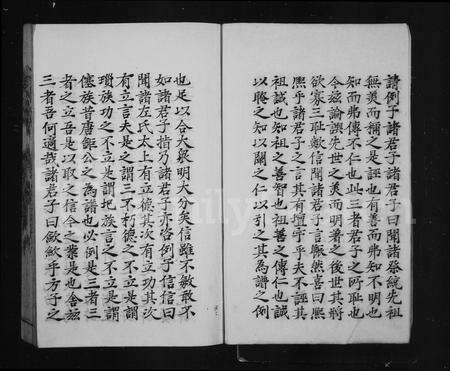 請例于諸君子諸君子曰聞諸祭統先祖
無美而稱之是誣也有善而弗知不明也
知而弗傳不仁也此三者君子之所恥也
今茲論譔先世之美而明著之後世其將
欲寡三恥敢信聞諸君子言熈然喜曰熈
熈乎諸君子之言其有壇宇乎夫不誣其
祖誠也知祖之善智也祖善之傳仁也誠
以聴之知以闗之仁以引之其為譜之例
也足以合大衆明大分矣信雖不敏敢不
如諸君子指乃諸君子亦咨例于信信曰
聞諸左氏太上有立德其次有立功其次
有立言夫是之謂三不朽德之不立是謂
瑣族功之不立是謂圯族言之不立是謂
僿族昔唐鉅公之為譜也必例是三者三
者之立吾是以取之信今之業是也舍茲
三者吾何適哉諸君子曰歛歛乎方子之